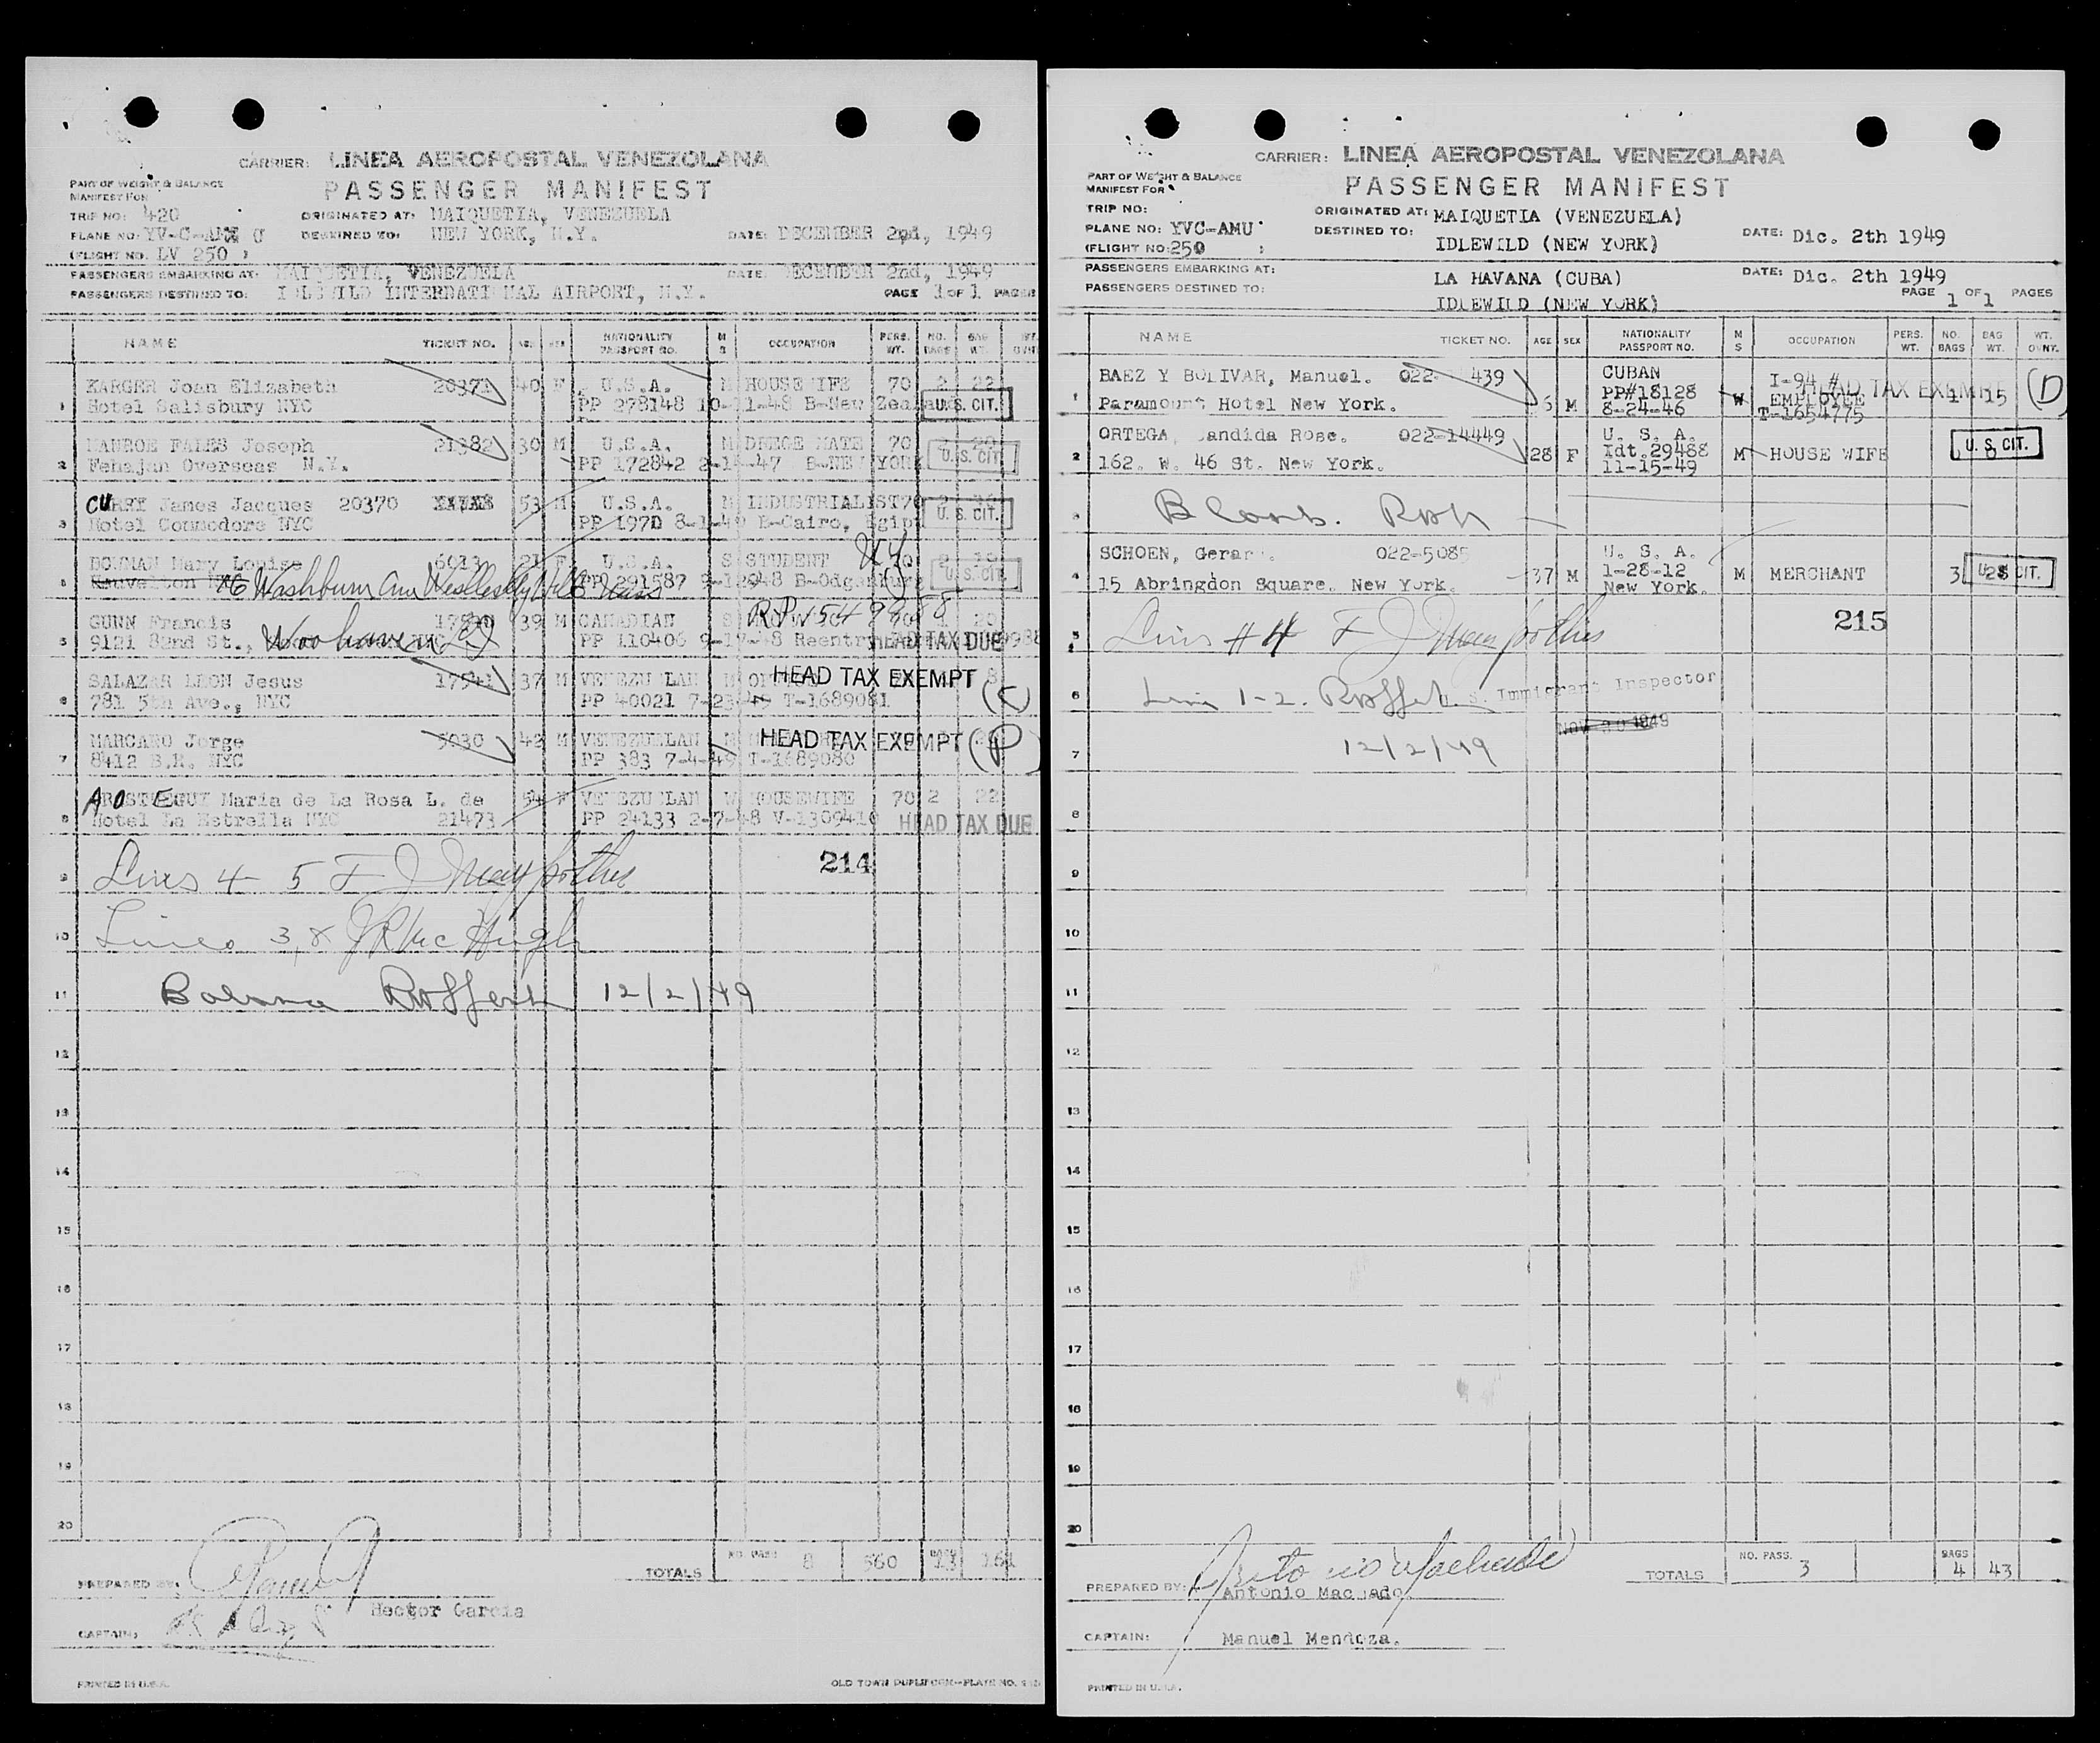 CARRIER: LINEA AEROPOSTAL VENEZOLANA
PASSENGER MANIFEST
PART OF WEIGHT & BALANCE
MANIFEST FOR
TRIP NO: 420
ORIGINATED AT: MAIQUETIA, VENEZUELA
PLANE NO: YV-C-AM U
DESTINED TO: NEW YORK, N.Y.
DATE: DECEMBER 2nd, 1949
(FLIGHT NO. LV 250 )
PASSENGERS EMBARKING AT: MAIQUETIA, VENEZUELA DATE: DECEMBER 2nd, 1949
PASSENGERS DESTINED TO: IDLEWILD INTERNATIONAL AIRPORT, N.Y. PAGE 1 OF 1 PAGES
NAME TICKET NO. AGE SEX NATIONALITY PASSPORT NO. M S OCCUPATION PERS. WT. NO. BAGS BAG WT. WT.
1 KARGER Joan Elizabeth 20371 40 F U.S.A. M HOUSEWIFE 70 2 22
Hotel Salisbury NYC PP 278148 10-11-48 B-New Zealand U.S. CIT.
2 MANROE FALES Joseph 21382 30 M U.S.A. M 70
Fehajan Overseas N.Y. PP 172842 B-NEW YORK U.S. CIT.
3 CURRY James Jacques 20370 53 M U.S.A. M INDUSTRIALIST 70
Hotel Commodore NYC PP 197D B-Cairo, Egipt U.S. CIT.
4 BOWMAN Mary Louise 6013 21 F U.S.A. S STUDENT
16 Washburn Ave Wellesley Mass PP 291587 U.S. CIT.
5 GUNN Francis 39 M CANADIAN S 20
9121 82nd St., Woodhaven PP 110406 9-17-48 HEAD TAX DUE
6 SALAZAR LEON Jesus 17541 37 M VENEZUELAN M HEAD TAX EXEMPT
781 5th Ave., NYC PP 40021 7-23-49 T-1689081 (C)
7 MARCANO Jorge 5030 42 M VENEZUELAN M HEAD TAX EXEMPT (P)
8412 B.R. NYC PP 383 7-4-49 T-1689080
8 AROSTEGUI Maria de La Rosa L. de 54 F VENEZUELAN W HOUSEWIFE 70 2 22
Hotel La Estrella NYC 21473 PP 24133 2-7-48 HEAD TAX DUE
214
9 Lines 4 5 F J
10 Lines 3, 8 J R McHugh
11 Balance 12/2/49
12
13
14
15
16
17
18
19
20
TOTALS NO. PASS: 8 560 BAGS 13 161
PREPARED BY:
Hector Garcia
CAPTAIN:
PRINTED IN U.S.A. OLD TOWN DUPLIFORM-PLATE NO.
CARRIER: LINEA AEROPOSTAL VENEZOLANA
PASSENGER MANIFEST
PART OF WEIGHT & BALANCE
MANIFEST FOR
TRIP NO:
ORIGINATED AT: MAIQUETIA (VENEZUELA)
PLANE NO: YVC-AMU
DESTINED TO: IDLEWILD (NEW YORK)
DATE: Dic. 2th 1949
(FLIGHT NO: 250 )
PASSENGERS EMBARKING AT: LA HAVANA (CUBA) DATE: Dic. 2th 1949
PASSENGERS DESTINED TO: IDLEWILD (NEW YORK) PAGE 1 OF 1 PAGES
NAME TICKET NO. AGE SEX NATIONALITY PASSPORT NO. M S OCCUPATION PERS. WT. NO. BAGS BAG WT. WT.
1 BAEZ Y BOLIVAR, Manuel. 022- 439 M CUBAN W I-94 # HEAD TAX EXEMPT 1 15 (D)
Paramount Hotel New York. PP#18128 EMPLOYEE
8-24-46 T-1654775
2 ORTEGA, Candida Rose. 022-14449 28 F U. S. A. M HOUSE WIFE U.S. CIT.
162. W. 46 St. New York. Idt.29488
11-15-49
3
4 SCHOEN, Gerar . 022-5085 37 M U. S. A. M MERCHANT 3 28 U.S. CIT.
15 Abringdon Square. New York. 1-28-12
New York.
215
5 Line # 4 F J
6 Line 1-2. U. S. Immigrant Inspector
NOV 30 1949
7 12/2/49
8
9
10
11
12
13
14
15
16
17
18
19
20
TOTALS NO. PASS. 3 BAGS 4 43
PREPARED BY: Antonio Machado
CAPTAIN: Manuel Mendoza.
PRINTED IN U.S.A.